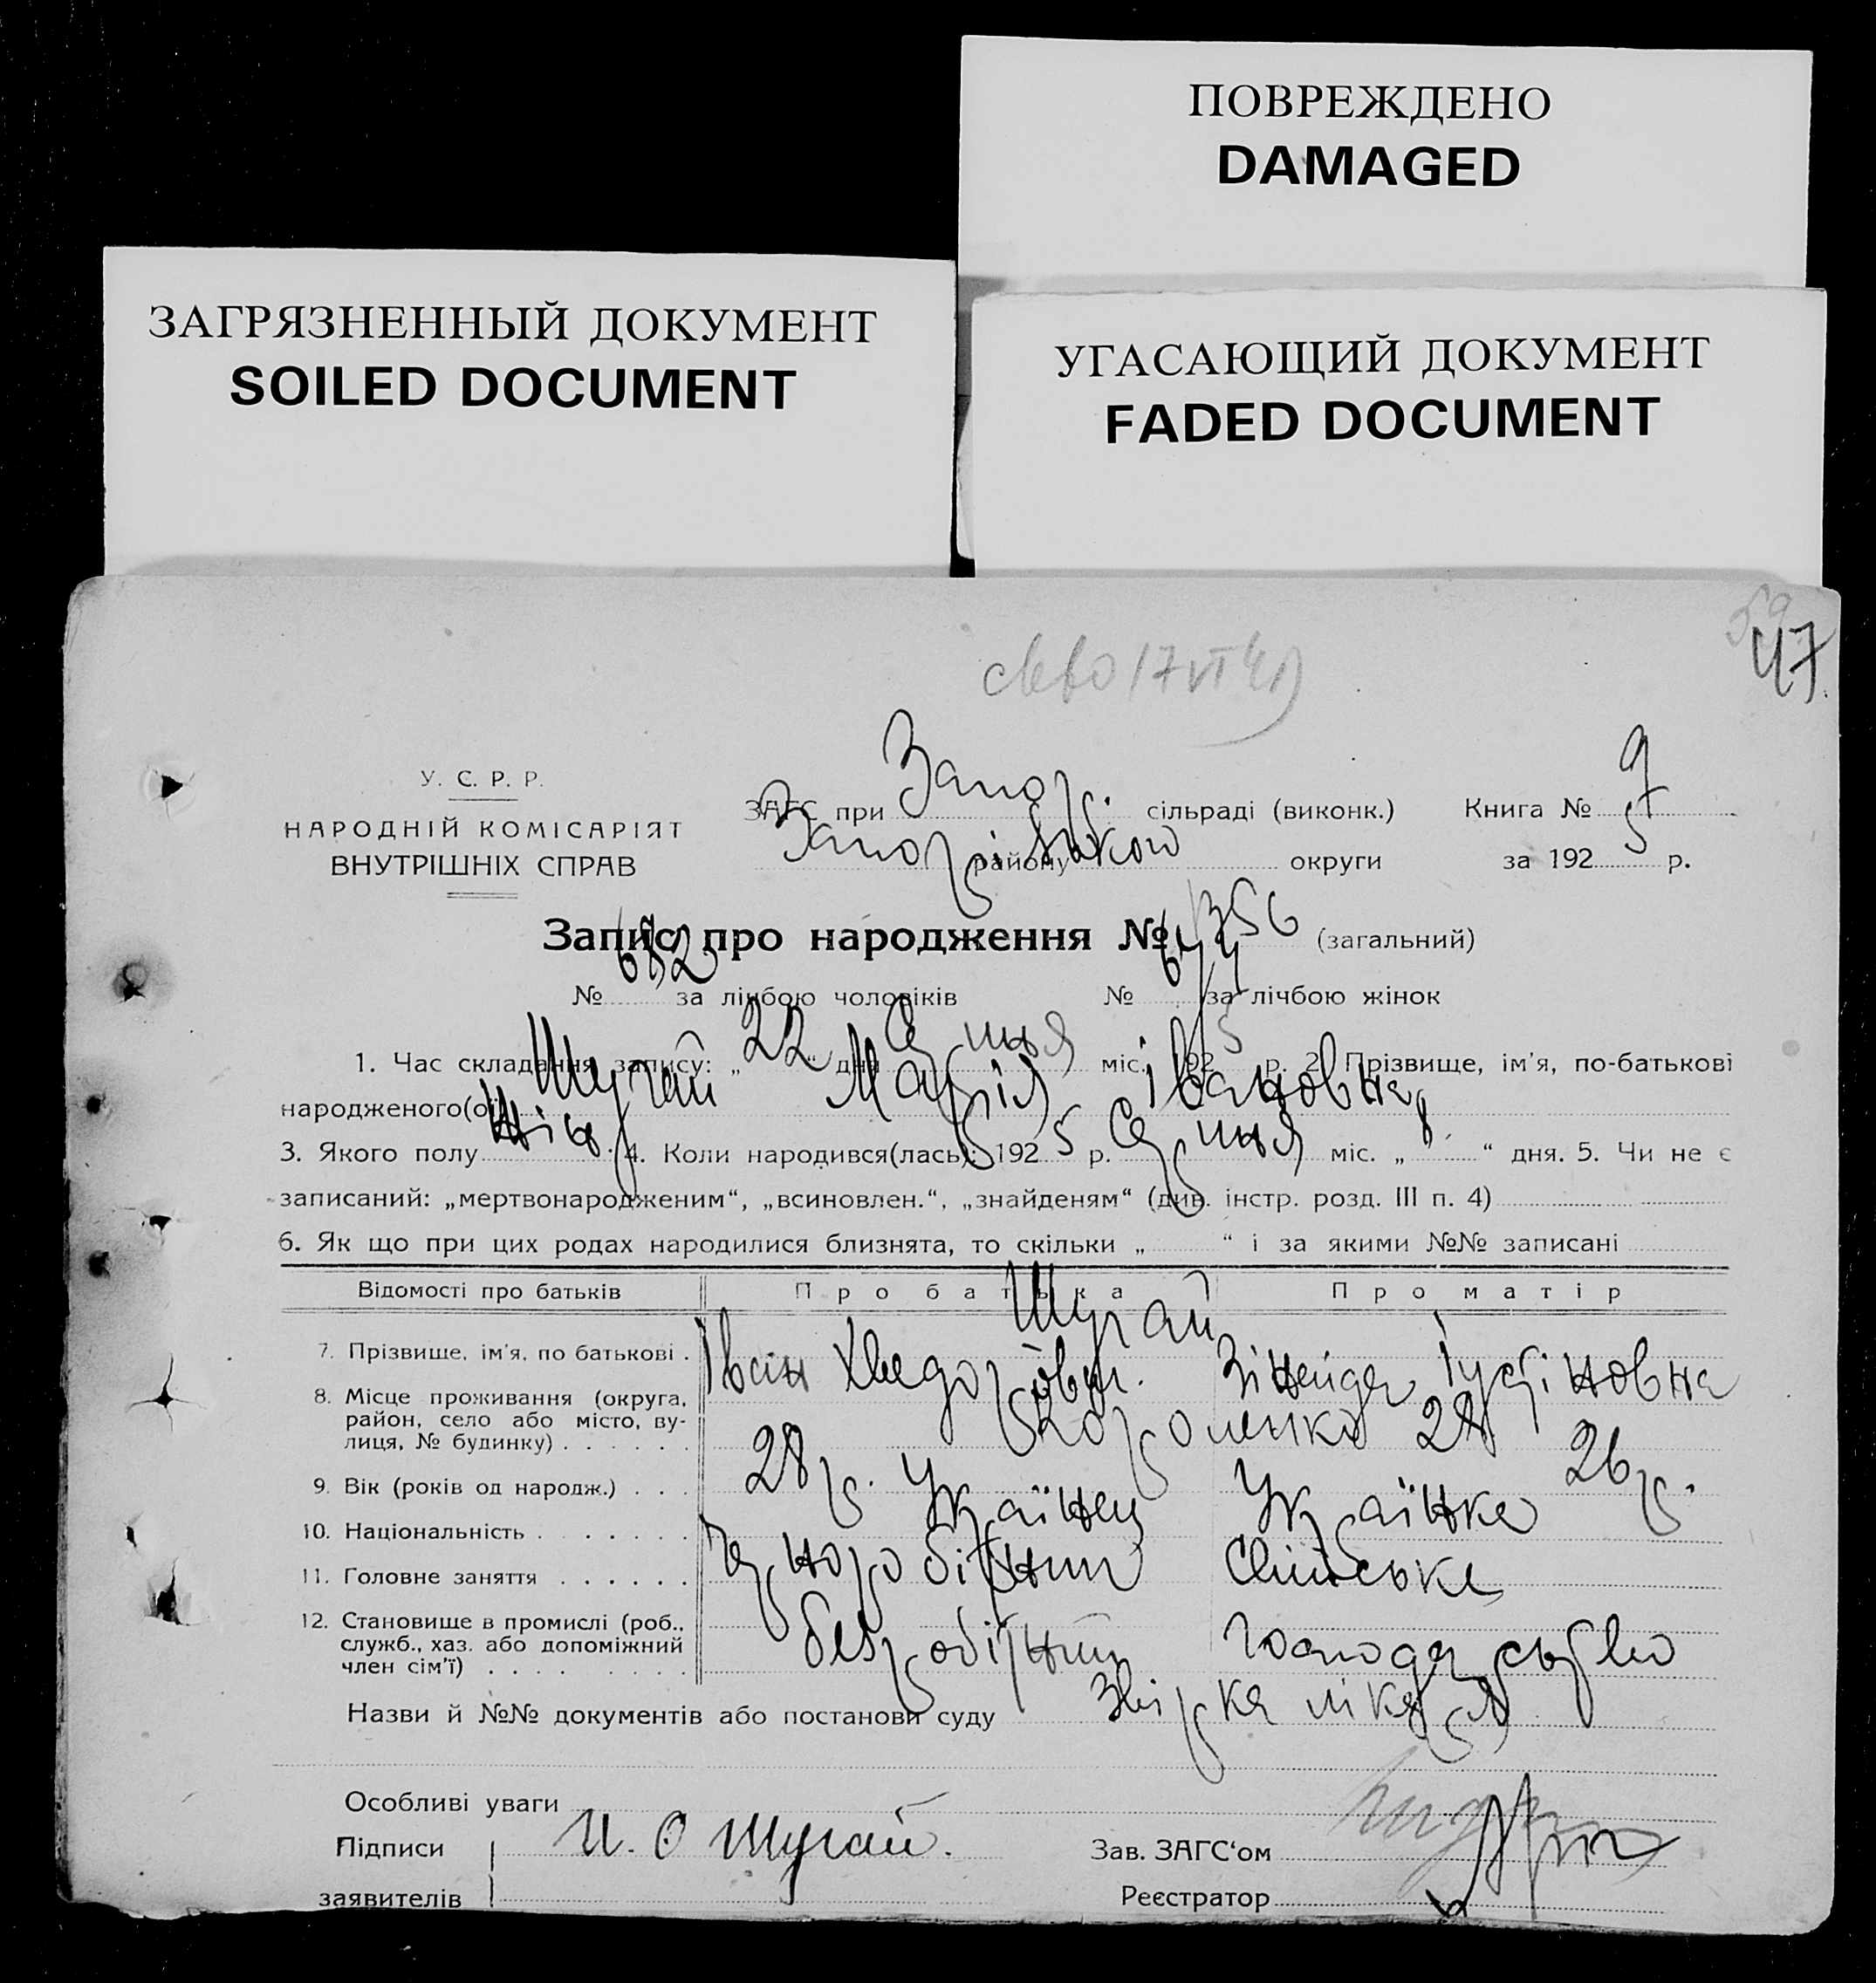 ПОВРЕЖДЕНО
DAMAGED
ЗАГРЯЗНЕННЫЙ ДОКУМЕНТ
SOILED DOCUMENT
УГАСАЮЩИЙ ДОКУМЕНТ
FADED DOCUMENT
47
У. С. Р. Р.
НАРОДНІЙ КОМІСАРІЯТ
ВНУТРІШНІХ СПРАВ
ЗАГС при Запор. сільраді (виконк.) Книга № 9
Запорізького району округи за 1925 р.
Запис про народження № 1356 (загальний)
№ 682 за лічбою чоловіків № 674 за лічбою жінок
1. Час складання запису: „22“ дня Серпня міс. 1925 р. 2. Прізвище, ім'я, по-батькові
народженого(ої) Шугай Марія Івановна
3. Якого полу жін. 4. Коли народився(лась): 1925 р. Серпня міс. „8“ дня. 5. Чи не є
записаний: „мертвонародженим“, „всиновлен.“, „знайденям“ (див. інстр. розд. III п. 4)
6. Як що при цих родах народилися близнята, то скільки „ “ і за якими №№ записані
Відомості про батьків Про батька Про матір
7. Прізвище, ім'я, по батькові . Шугай
Іван Хведорович. Зінаїда Іустіновна
8. Місце проживання (округа, район, село або місто, вулиця, № будинку) . . . . . . Короленко 28
9. Вік (років од народж.) . . . 28 р. 26 р.
10. Національність . . . . . . . Українец Українка
11. Головне заняття . . . . . . Чорноробітник Сільське
12. Становище в промислі (роб., служб., хаз. або допоміжний член сім'ї) . . . . . . . . . безробітний господарство
Назви й №№ документів або постанови суду лікаря
Особливі уваги
Підписи И. Ф Шугай. Зав. ЗАГС'ом
заявителів Реєстратор